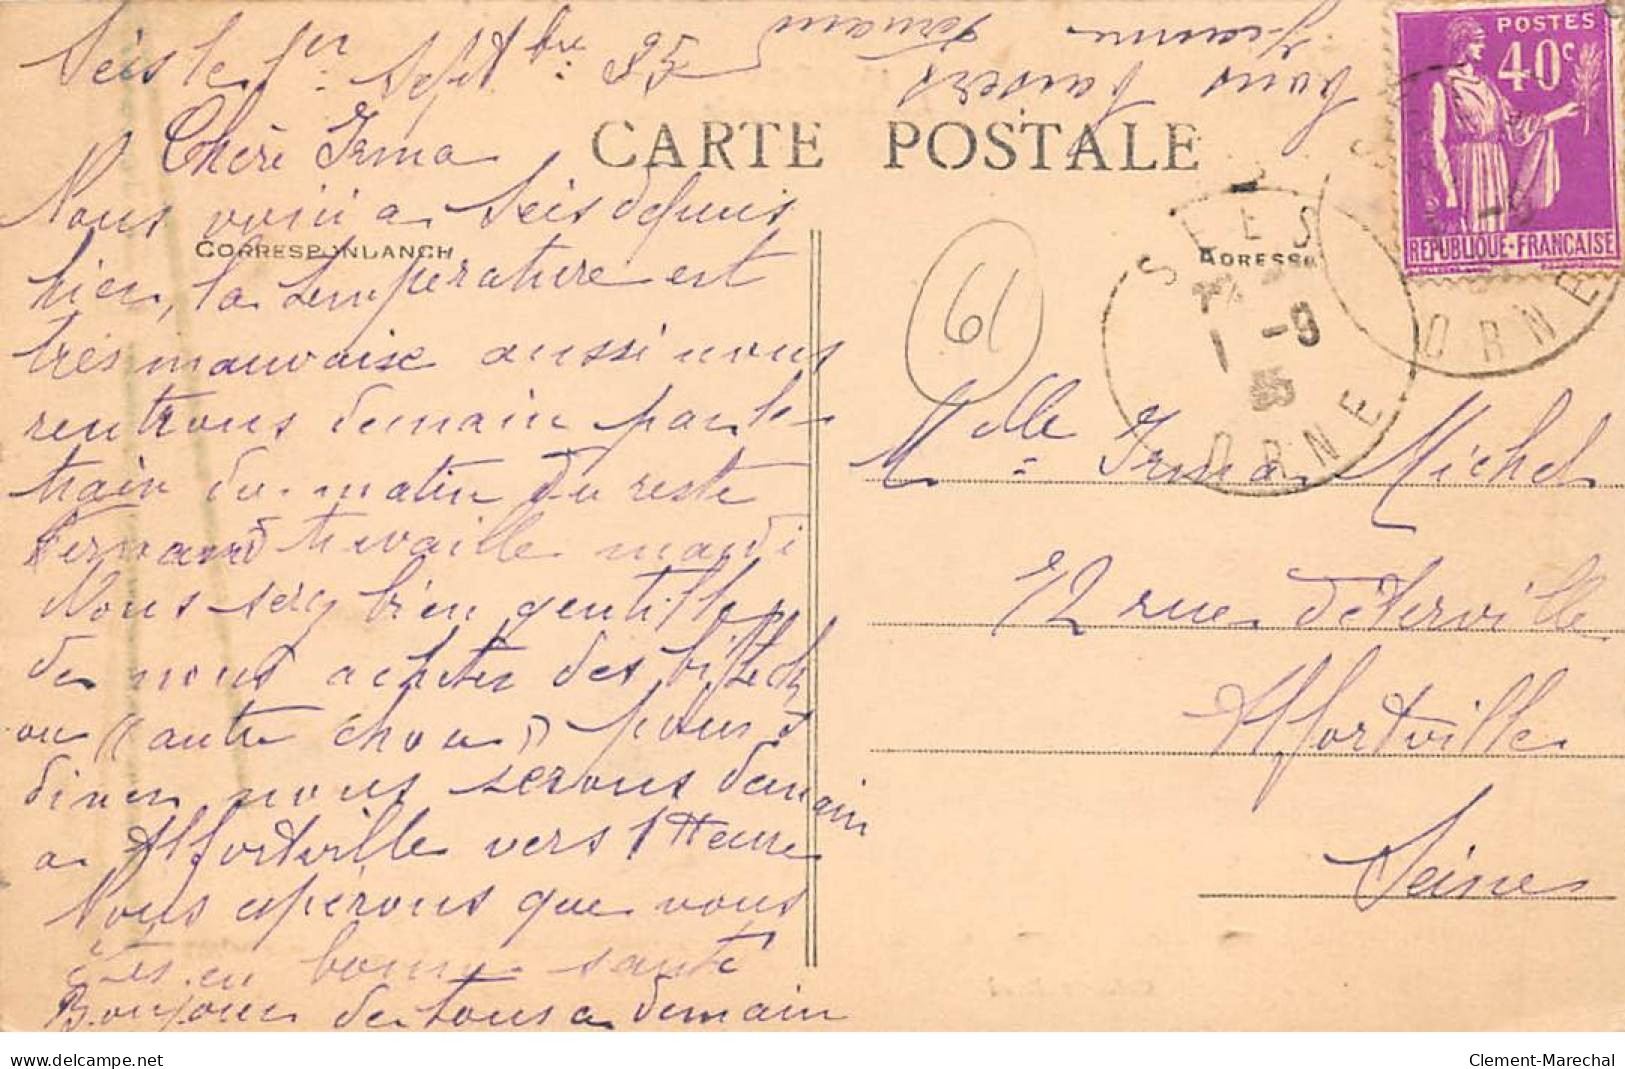 Séis le 1er Septbre 35
Bons baisers
Jeanne Fernand
Chère Irma
Nous voici a Séis depuis
hier, la température est
très mauvaise aussi nous
rentrons demain par le
train du matin du reste
Fernand travaille mardi
Vous serez bien gentille
de nous acheter des bifteck
ou "autre chose" pour
diner nous serons demain
a Alfortville vers 1 Heure
Nous espérons que vous
êtes en bonne santé
Bonjour de tous a demain
CARTE POSTALE
CORRESPONDANCE
ADRESSE
POSTES
40c
REPUBLIQUE·FRANÇAISE
SEES
1 -9
35
ORNE
ORNE
61
Melle Irma Michel
72 rue Véterville
Alfortville
Seine
www.delcampe.net
Clement-Marechal